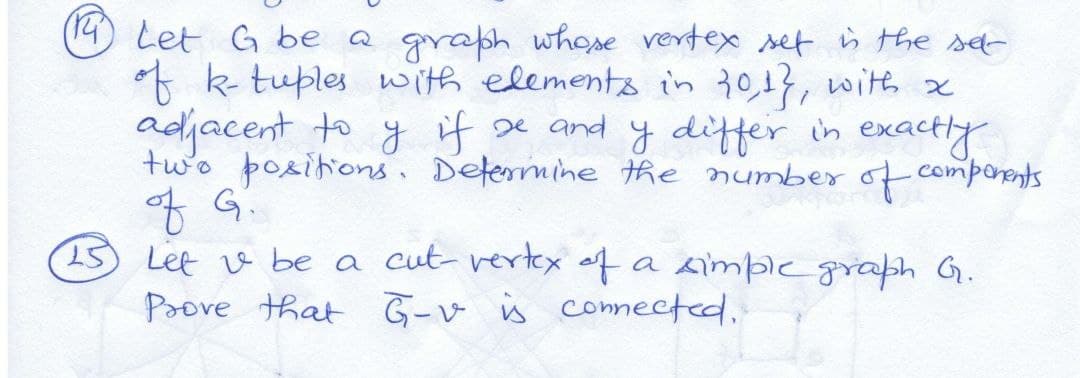 14 Let G be a graph whose vertex set is the set
of k-tuples with elements in {0,1}, with x
adjacent to y if x and y differ in exactly
two positions. Determine the number of components
of G.
15 Let v be a cut-vertex of a simple graph G.
Prove that G̅-v is connected.